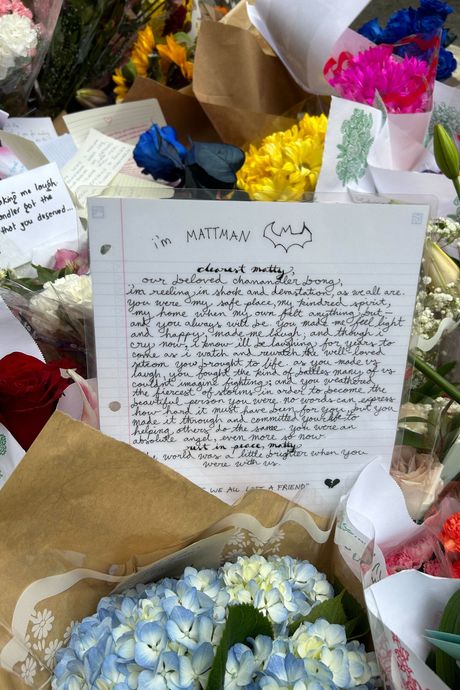 king me laugh
ndler got the
that you deserved...
i'm MATTMAN
dearest matty,
our beloved chanandler bong,
i'm reeling in shock and devastation, as we all are.
you were my safe place, my kindred spirit,
my home when my own felt anything but –
and you always will be. you made me feel light
and happy, made me laugh, and though i
cry now, i know i'll be laughing for years to
come as i watch and rewatch the well-loved
sitcom you brought to life. as you made us
laugh, you fought the kind of battles many of us
couldn't imagine fighting; and you weathered
the fiercest of storms in order to become the
beautiful person you were. no words can express
how hard it must have been for you, but you
made it through and committed your life to
helping others do the same. you were an
absolute angel, even more so now.
rest in peace, matty.
world was a little brighter when you
were with us.
WE ALL LOST A FRIEND"